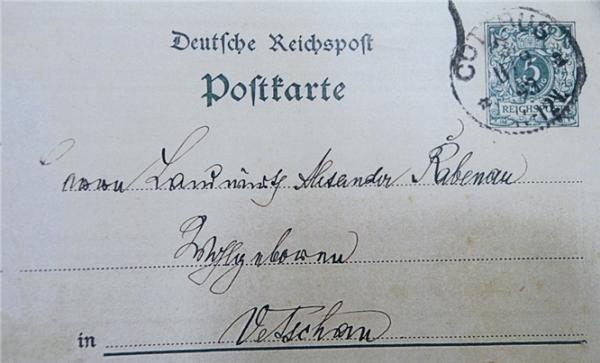 Deutsche Reichspost
Postkarte
COTTBUS
5
REICHSPOST
Herrn Landwirth Alexander Rabenau
Wohlgeboren
in Vetschau